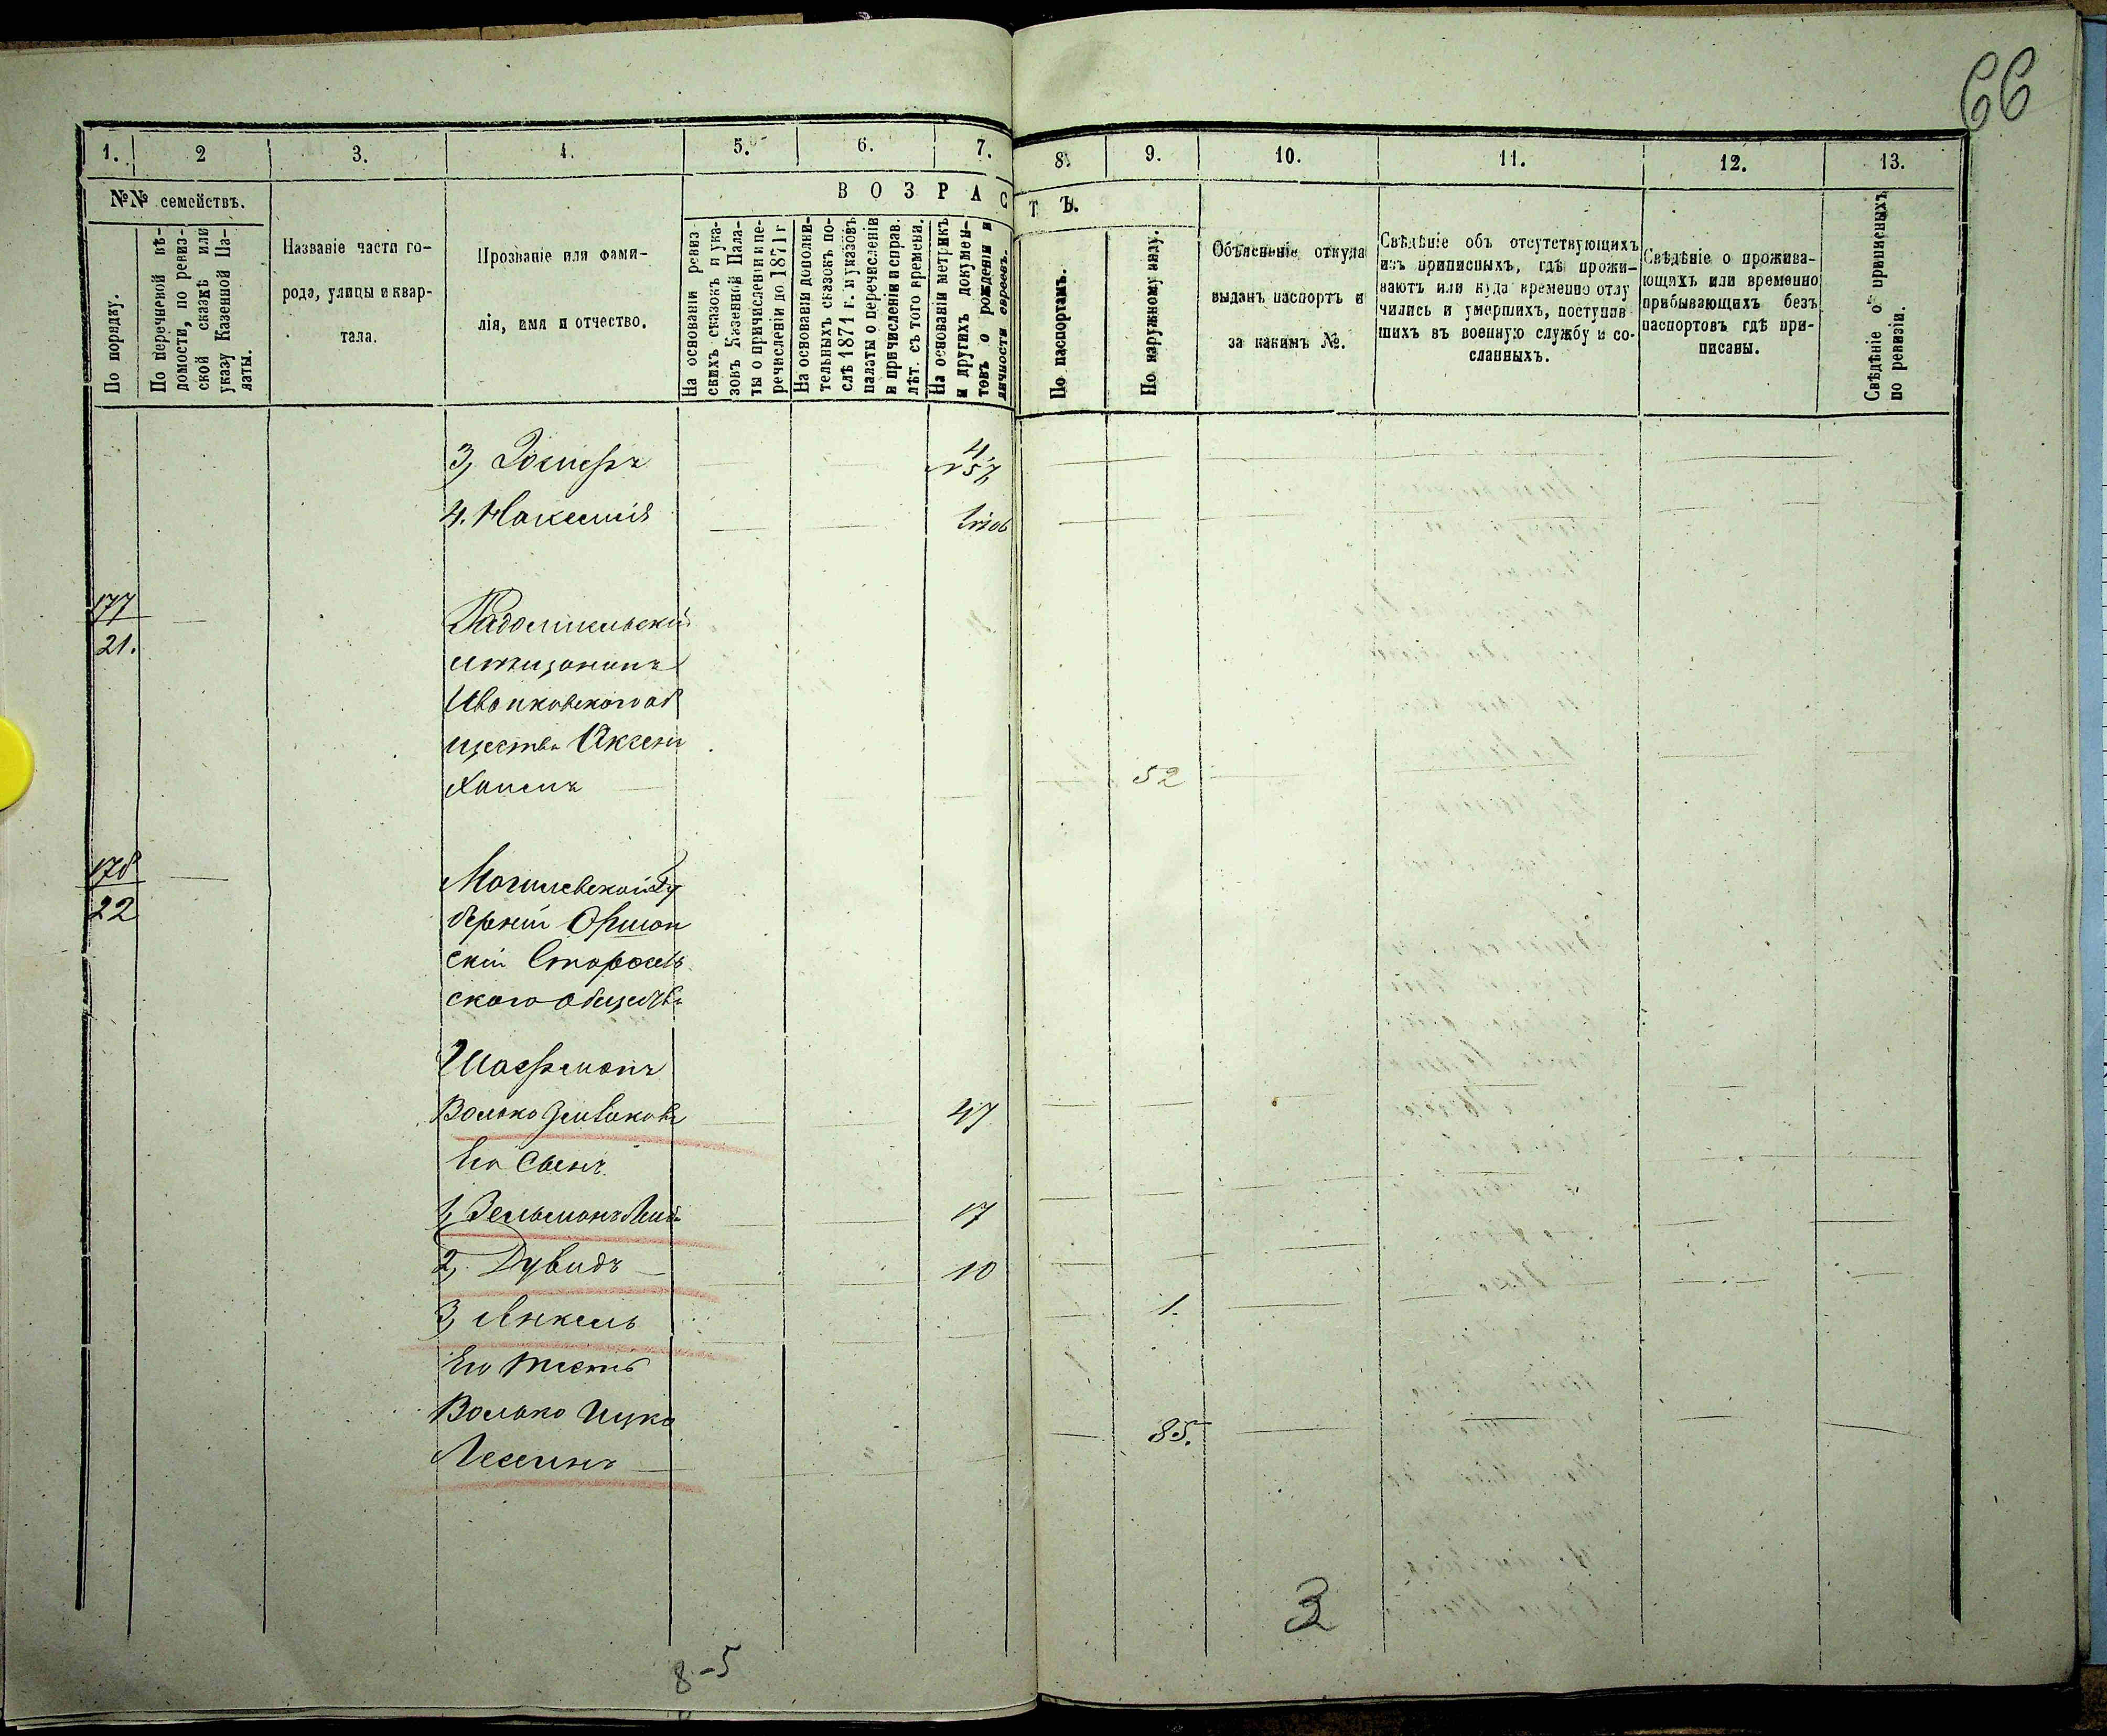 66
1. 2 3. 4. 5. 6. 7. 8. 9. 10. 11. 12. 13.
№№ семействъ.
В О З Р А С Т Ъ.
По порядку.
По перечневой вѣ-
домости, по ревиз-
ской сказкѣ или
указу Казенной Па-
латы.
Названіе части го-
рода, улицы и квар-
тала.
Прозваніе или фами-
лія, имя и отчество.
На основаніи ревиз-
скихъ сказокъ и ука-
зовъ Казенной Пала-
ты о причисленіи и пе-
речисленіи до 1871 г
На основаніи дополни-
тельныхъ сказокъ по-
слѣ 1871 г. и указовъ
палаты о перечисленіи
и причисленіи и справ.
лѣт. съ того времени.
На основаніи метрикъ
и другихъ докумен-
товъ о рожденіи и
личности евреевъ.
По паспортамъ.
По наружному виду.
Объясненіе откуда
выданъ паспортъ и
за какимъ №.
Свѣдѣніе объ отсутствующихъ
изъ приписныхъ, гдѣ прожи-
ваютъ или куда временно отлу
чились и умершихъ, поступив
шихъ въ военную службу и со-
сланныхъ.
Свѣдѣніе о прожива-
ющихъ или временно
прибывающихъ безъ
паспортовъ гдѣ при-
писаны.
Свѣдѣніе о приписныхъ
по ревизіи.
3, 4
№57
4.
177
21.
Радошкевскій
мѣщанинъ
Иванковского об
щества
Хаимъ 52
178
22
Могилевской Гу
берніи Оршан
скій
ского общества
Шасфманъ
Волько 47
Его сынъ
1, Зельманъ Лейба 17
2, Дувидъ 10
3, Янкель 1.
Его тесть
Волько Ицка
Лессинъ 85.
8-5
3